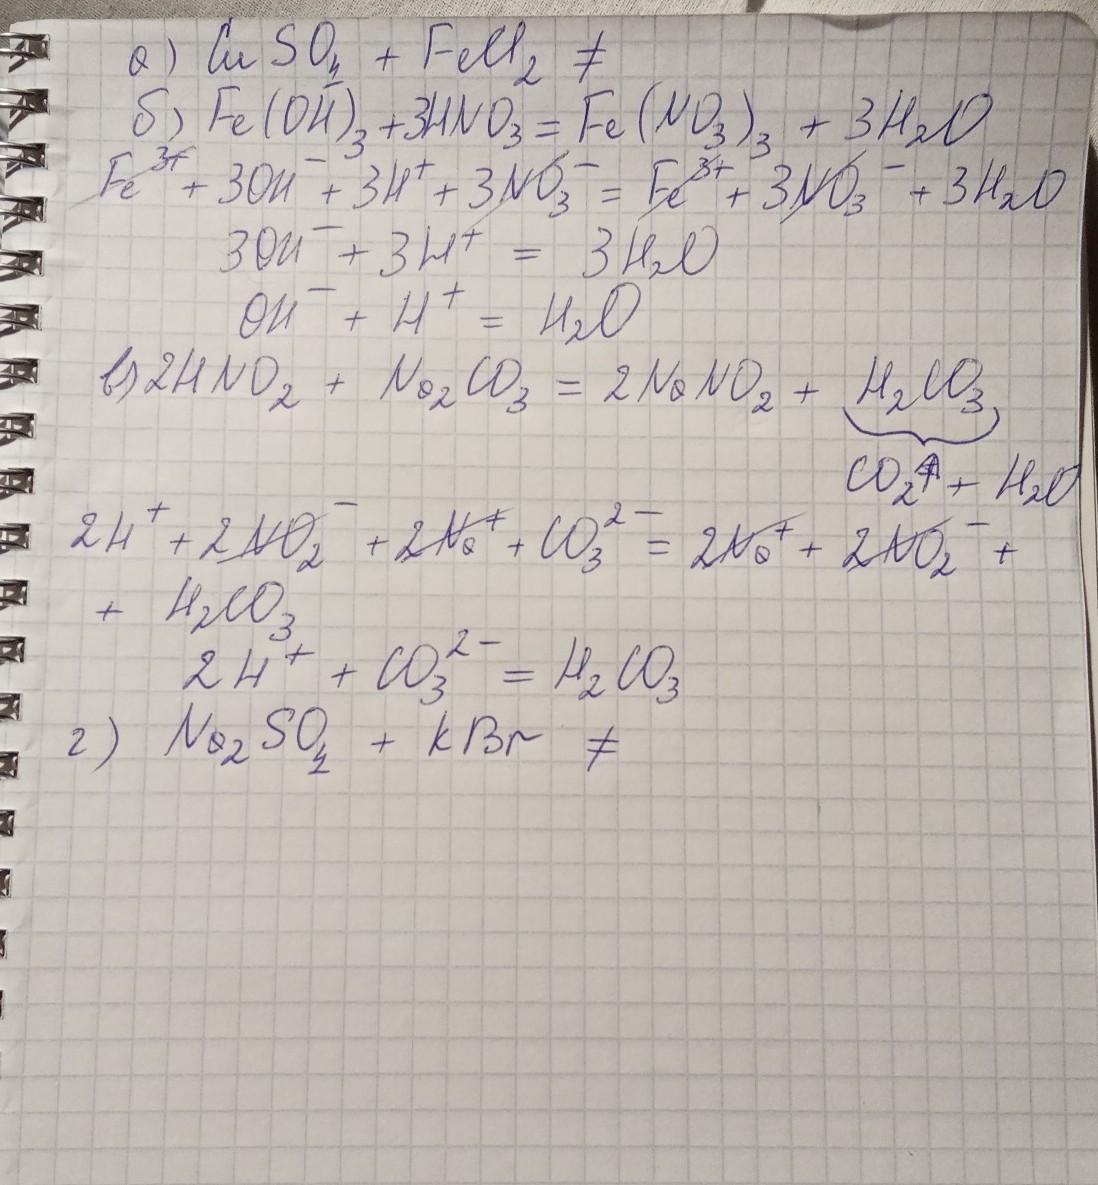 а) CuSO₄ + FeCl₂ ≠
б) Fe(OH)₃ + 3HNO₃ = Fe(NO₃)₃ + 3H₂O
Fe³⁺ + 3OH⁻ + 3H⁺ + 3NO₃⁻ = Fe³⁺ + 3NO₃⁻ + 3H₂O
3OH⁻ + 3H⁺ = 3H₂O
OH⁻ + H⁺ = H₂O
в) 2HNO₂ + Na₂CO₃ = 2NaNO₂ + H₂CO₃
CO₂↑ + H₂O
2H⁺ + 2NO₂⁻ + 2Na⁺ + CO₃²⁻ = 2Na⁺ + 2NO₂⁻ +
+ H₂CO₃
2H⁺ + CO₃²⁻ = H₂CO₃
г) Na₂SO₄ + KBr ≠